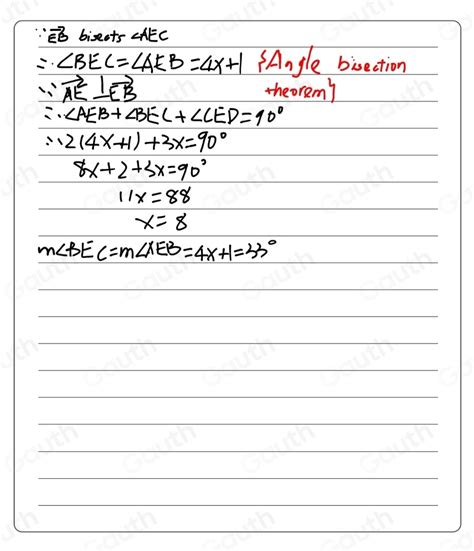 ∵ →EB bisects ∠AEC
∴ ∠BEC=∠AEB=4x+1 {Angle bisection theorem}
∵ →AE ⊥ →EB
∴ ∠AEB+∠BEC+∠CED=90°
∴ 2(4x+1)+3x=90°
8x+2+3x=90°
11x=88
x=8
m∠BEC=m∠AEB=4x+1=33°